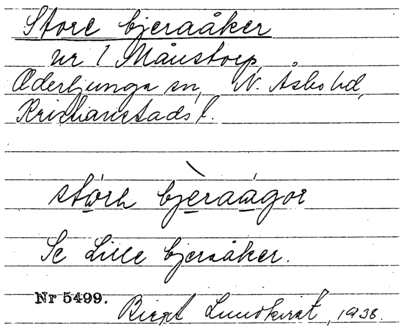 Store bjeraåker
nr 1 Månstorp,
Oderljunga sn, N. Åsbo hd,
Kristianstads l.
stórh bjèraágor
Se Lille bjeraåker.
Nr 5499. Birgit Lundkvist, 1938.